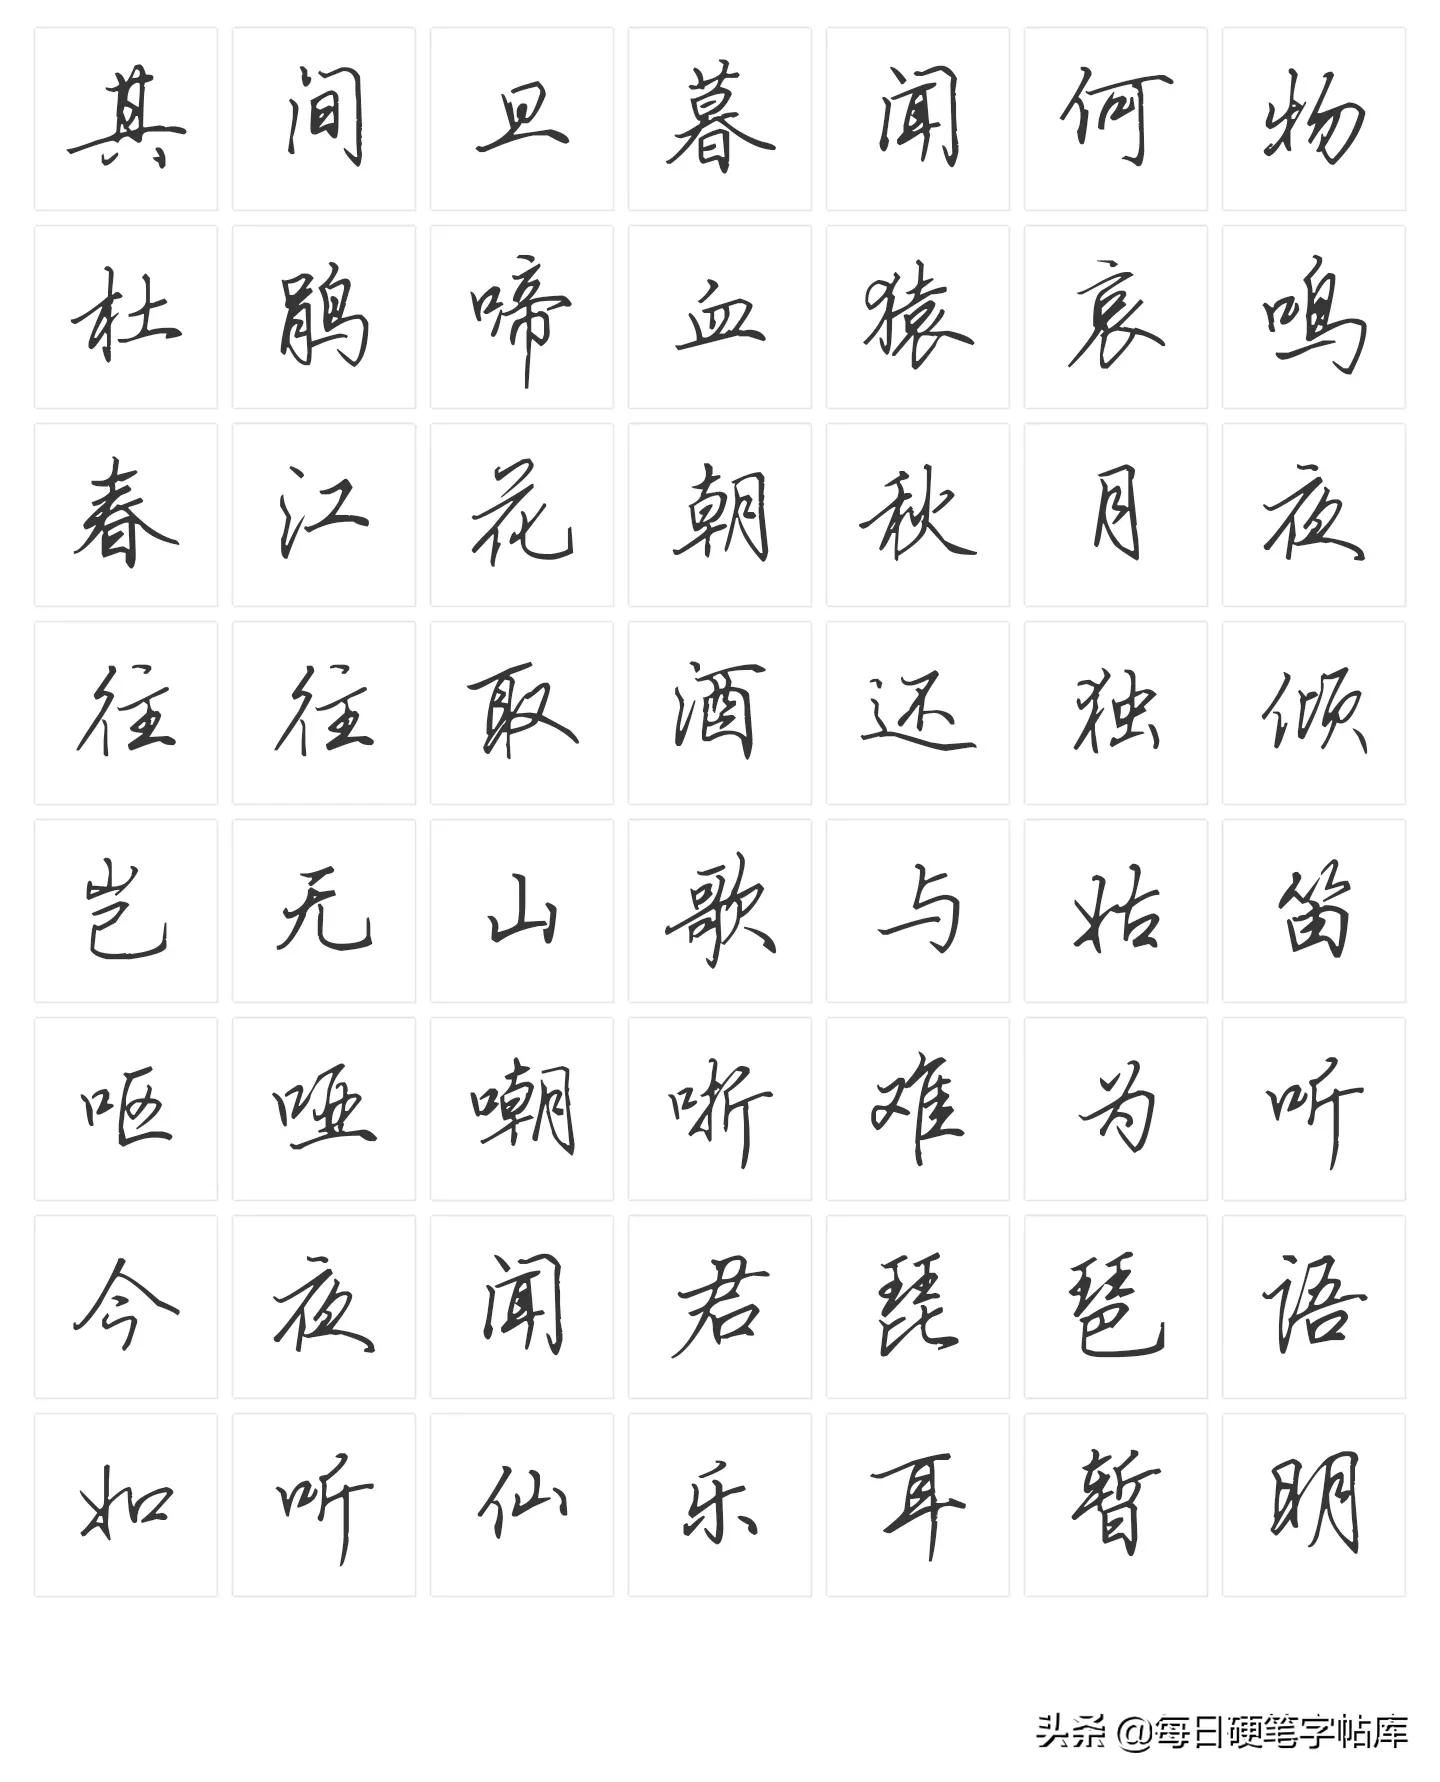 其间旦暮闻何物
杜鹃啼血猿哀鸣
春江花朝秋月夜
往往取酒还独倾
岂无山歌与姑笛
呕哑嘲哳难为听
今夜闻君琵琶语
如听仙乐耳暂明
头条 @每日硬笔字帖库